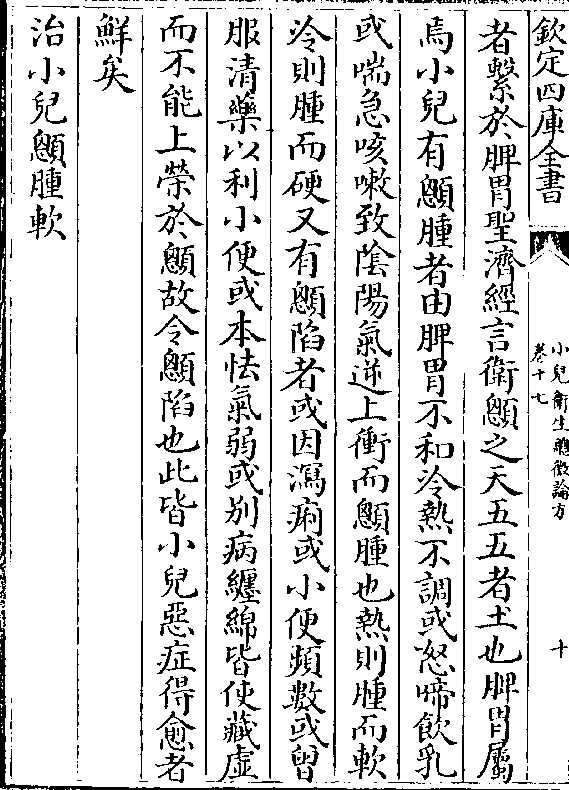 欽定四庫全書
小兒衛生總微論方
卷十七
十
者繫於脾胃聖濟經言衛顖之天五五者土也脾胃屬
焉小兒有顖腫者由脾胃不和冷熱不調或怒啼飲乳
或喘急咳嗽致陰陽氣逆上衝而顖腫也熱則腫而軟
冷則腫而硬又有顖陷者或因瀉痢或小便頻數或曾
服清藥以利小便或本怯氣弱或别病纏綿皆使藏虛
而不能上榮於顖故令顖陷也此皆小兒惡症得愈者
鮮矣
治小兒顖腫軟